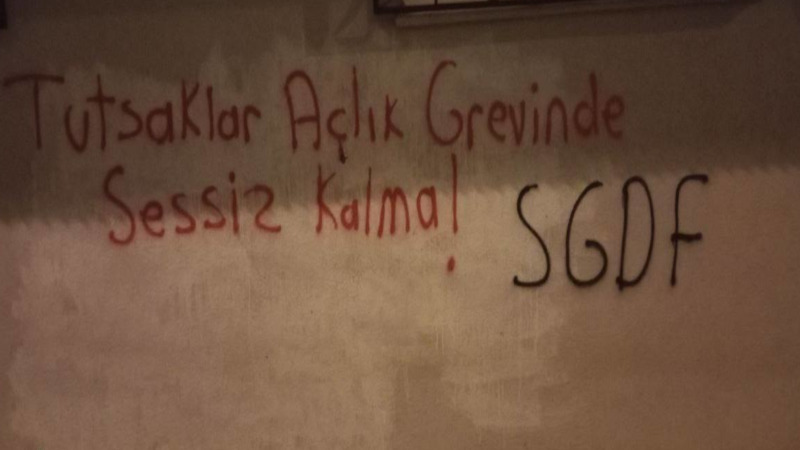 Tutsaklar Açlık Grevinde
Sessiz Kalma!
SGDF